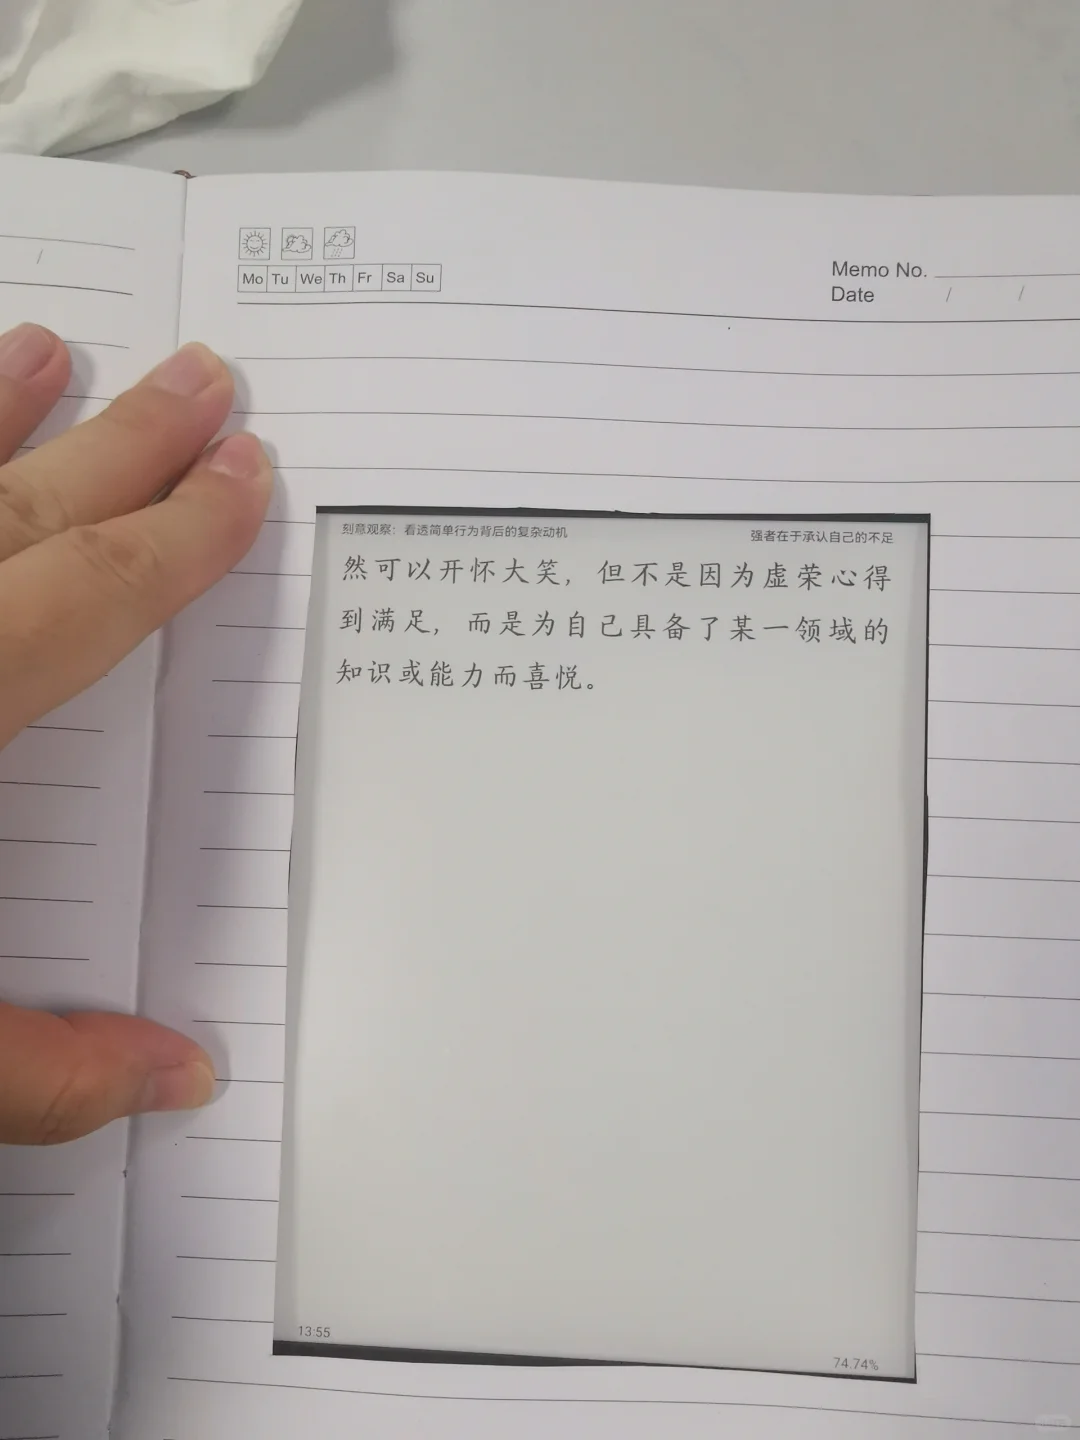 Mo Tu We Th Fr Sa Su
Memo No.
Date / /
/
刻意观察：看透简单行为背后的复杂动机
强者在于承认自己的不足
然可以开怀大笑，但不是因为虚荣心得
到满足，而是为自己具备了某一领域的
知识或能力而喜悦。
13:55
74.74%